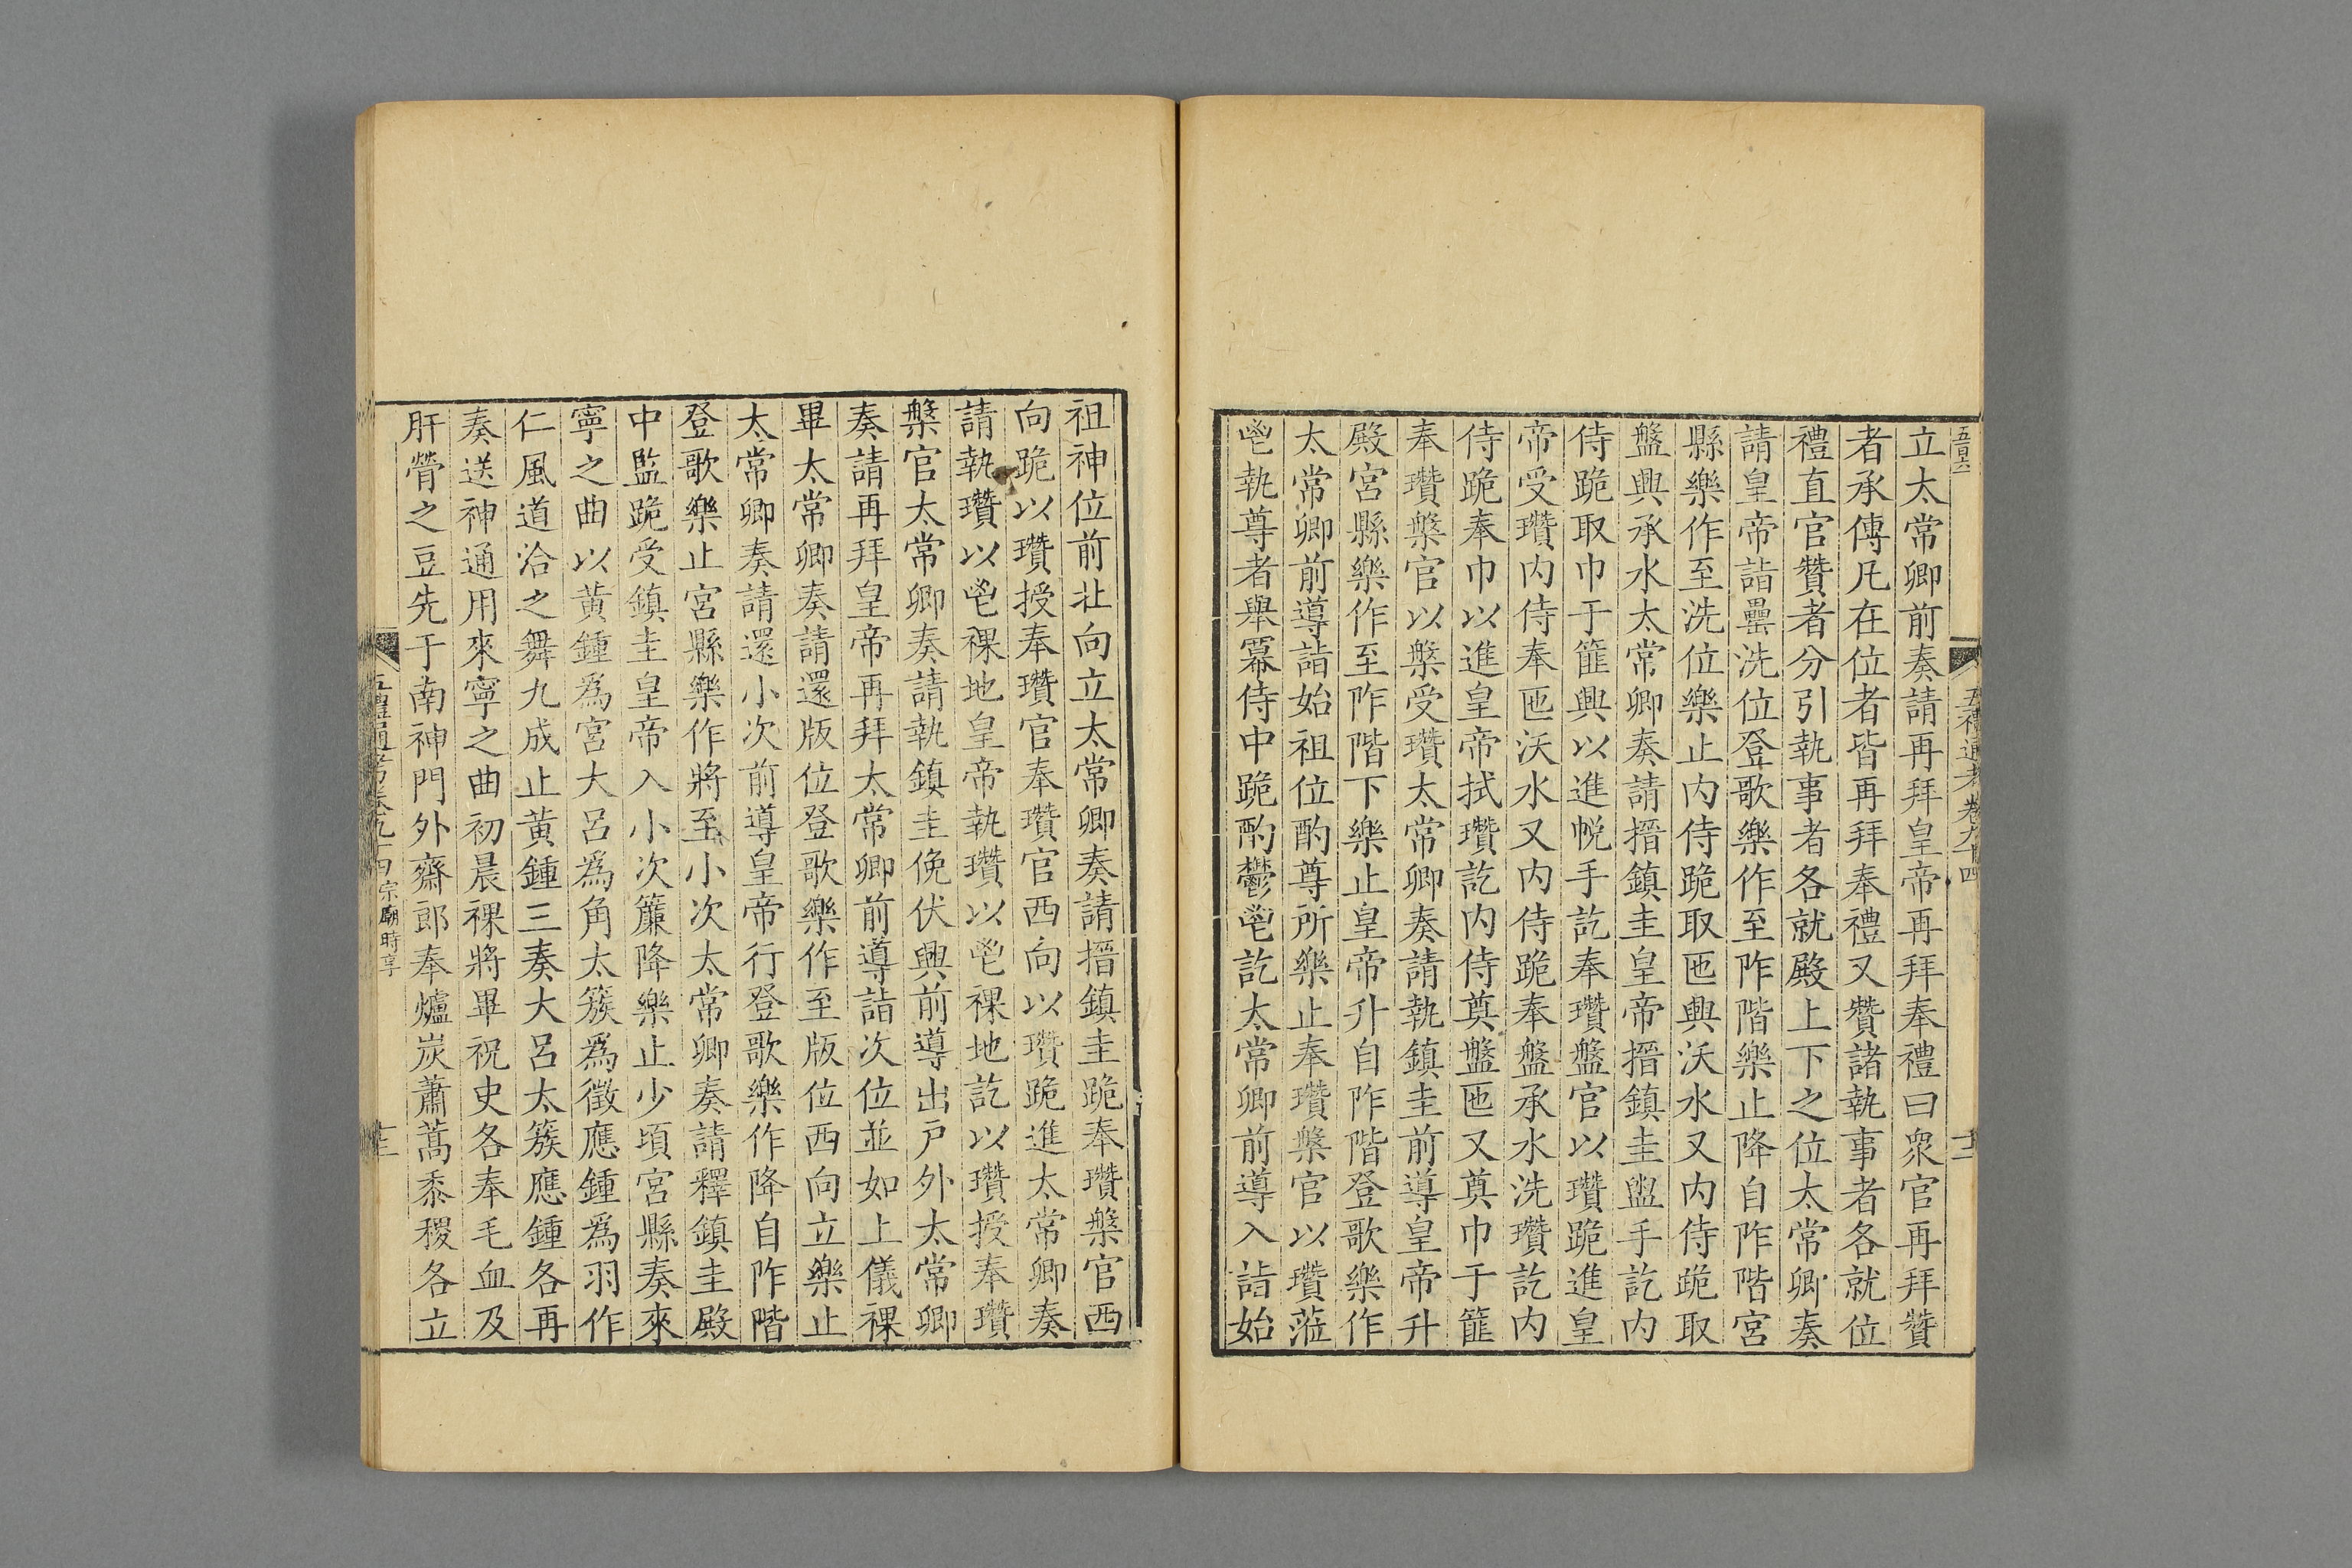 五百六
五禮通考卷九十四
十二
立太常卿前奏請再拜皇帝再拜奉禮曰衆官再拜贊
者承傳凡在位者皆再拜奉禮又贊諸執事者各就位
禮直官贊者分引執事者各就殿上下之位太常卿奏
請皇帝詣罍洗位登歌樂作至阼階樂止降自阼階宮
縣樂作至洗位樂止内侍跪取匜興沃水又内侍跪取
盤興承水太常卿奏請搢鎮圭皇帝搢鎮圭盥手訖内
侍跪取巾于篚興以進帨手訖奉瓚盤官以瓚跪進皇
帝受瓚内侍奉匜沃水又内侍跪奉盤承水洗瓚訖内
侍跪奉巾以進皇帝拭瓚訖内侍奠盤匜又奠巾于篚
奉瓚槃官以槃受瓚太常卿奏請執鎮圭前導皇帝升
殿宮縣樂作至阼階下樂止皇帝升自阼階登歌樂作
太常卿前導詣始祖位酌尊所樂止奉瓚槃官以瓚蒞
鬯執尊者舉冪侍中跪酌鬱鬯訖太常卿前導入詣始
祖神位前北向立太常卿奏請搢鎮圭跪奉瓚槃官西
向跪以瓚授奉瓚官奉瓚官西向以瓚跪進太常卿奏
請執瓚以鬯祼地皇帝執瓚以鬯祼地訖以瓚授奉瓚
槃官太常卿奏請執鎮圭俛伏興前導出戶外太常卿
奏請再拜皇帝再拜太常卿前導詣次位並如上儀祼
畢太常卿奏請還版位登歌樂作至版位西向立樂止
太常卿奏請還小次前導皇帝行登歌樂作降自阼階
登歌樂止宮縣樂作將至小次太常卿奏請釋鎮圭殿
中監跪受鎮圭皇帝入小次簾降樂止少頃宮縣奏來
寧之曲以黃鍾爲宮大呂爲角太簇爲徵應鍾爲羽作
仁風道洽之舞九成止黃鍾三奏大呂太簇應鍾各再
奏送神通用來寧之曲初晨祼將畢祝史各奉毛血及
肝膋之豆先于南神門外齋郎奉爐炭蕭蒿黍稷各立
五禮通考卷九十四宗廟時享
十三